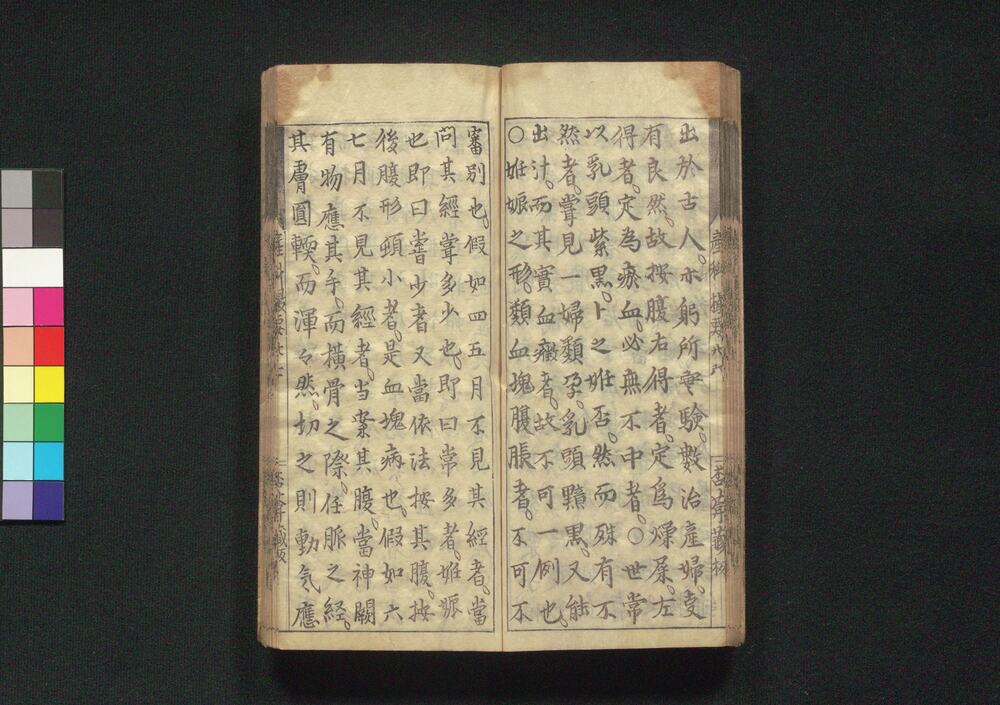 出於古人。亦躬所実験。數治産婦。支
有良然。故按腹右得者。定爲燥屎。左
得者。定為瘀血。必無不中者。○世常
以乳頭紫黒。卜之妊否。然而殊有不
然者。甞見一婦類孕。乳頭黯黒。又能
出汁。而其實血癥者。故不可一例也。
○妊娠之形。類血塊腹脹者。不可不
審別也。假如四五月不見其經者。當
問其經甞多少也。即曰常多者。妊娠
也。即曰甞少者。又當依法按其腹。按
後腹形頓小者。是血塊病也。假如六
七月不見其經者。当案其腹。當神闕
有物應其手。而横骨之際。任脈之経。
其膚圓輭。而渾々然。切之則動気應